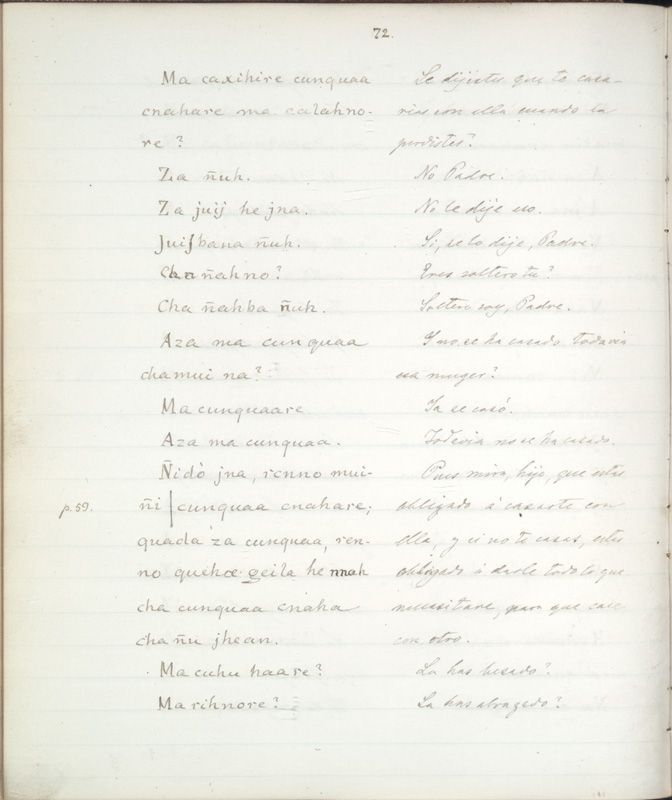 72.
Ma caxihire cunquaa
cnahare ma calahno-
re?
Za ñuh.
Za juij he jna.
Juijbana ñuh.
Chanñahno?
Cha ñahba ñuh.
Aza ma cunquaa
chamui na?
Ma cunquaare
Aza ma cunquaa.
Ñidò jna, renno mui-
p. 59. ñi cunquaa cnahare;
quada za cunquaa, ren-
no quehce geila he nnah
cha cunquaa cnaha
chañu jhean.
Ma cuhu haare?
Ma rihnore?
Le dijistes que te casa-
rias con ella cuando la
perdistes?
No Padre.
No le dije eso.
Si, se lo dije, Padre.
Eres soltero tu?
Soltero soy, Padre.
Y no se ha casado todavia
esa muger?
Ya se casó.
Todevia no se ha casado.
Pues mira, hijo, que estas
obligado á casarte con
ella, y si no te casas, estas
obligado á darle todo lo que
necesitare, para que case
con otro.
La has besado?
La has abrazado?